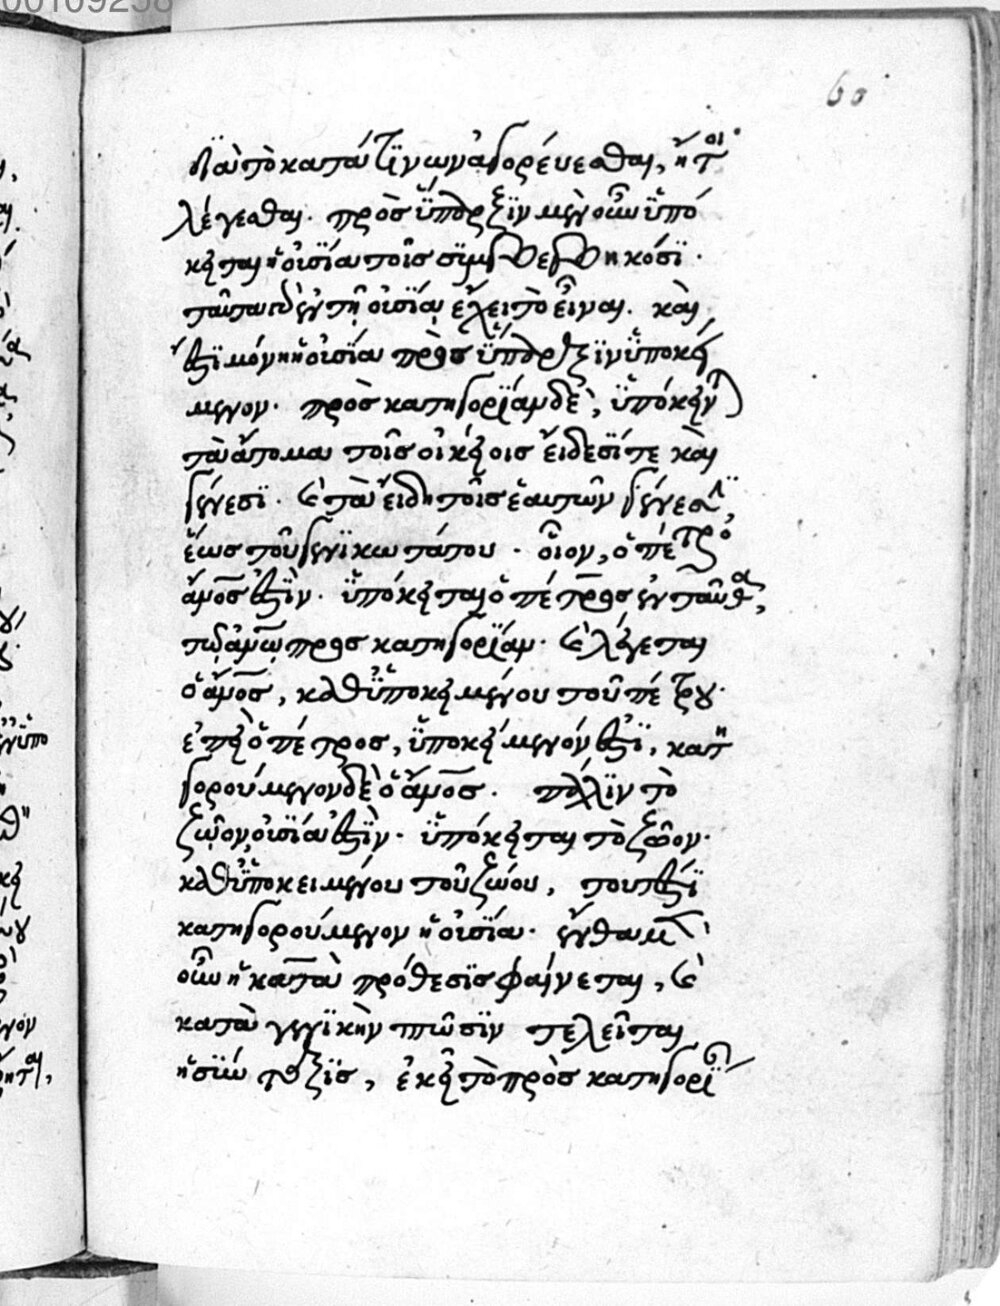 00109238
60
διὰ τὸ κατά τινων ἀγορέυεσθαι, ἤτοι
λέγεσθαι. πρὸς ὕπαρξϊν μὲν οὖν ὑπό
κειται ἡ οὐσία τοῖς σϊμβεβηκόσϊ.
ταῦτα γὰρ ἐν τῆ οὐσία ἔχει τὸ εἶναι. καὶ
ἔστϊ μόνη ἡ οὐσία πρὸς ὕπαρξϊν ὑποκεί
μενον. πρὸς κατηγορίαν δὲ, ὑπόκειν
τὰ ἄτομα τοῖς οἰκείοις εἴδεσϊ τε καὶ
γένεσϊ. καὶ τὰ εἴδη τοῖς ἑαυτῶν γένεσϊ,
ἕως τοῦ γενικωτάτου. οἷον, ὁ πέτρος
ἄνος ἐστϊν. ὑπόκειται ὁ πέτρος ἐνταῦθα,
τῷ ἀνῳ προς κατηγορίαν. καὶ λέγεται
ὁ ἄνος, καθ ὑποκειμένου τοῦ πέτρου.
ἐπεὶ ὁ πέτρος, ὑποκείμενόν ἐστϊ, κατη
γορούμενον δὲ ὁ ἄνος. πάλϊν τὸ
ζῶον, οὐσία ἐστϊν. ὑπόκειται τὸ ζῶον.
καθ ὑποκειμένου τοῦ ζώου, τουτέστϊ
κατηγορούμενον ἡ οὐσία. ἔνθα μὲν
οὖν ἡ κατὰ πρόθεσϊς φαίνεται, καὶ
κατὰ γενϊκὴν πτῶσϊν τελεῖται
ἡ σύνταξϊς, ἐκεῖ τὸ πρὸς κατηγορίαν